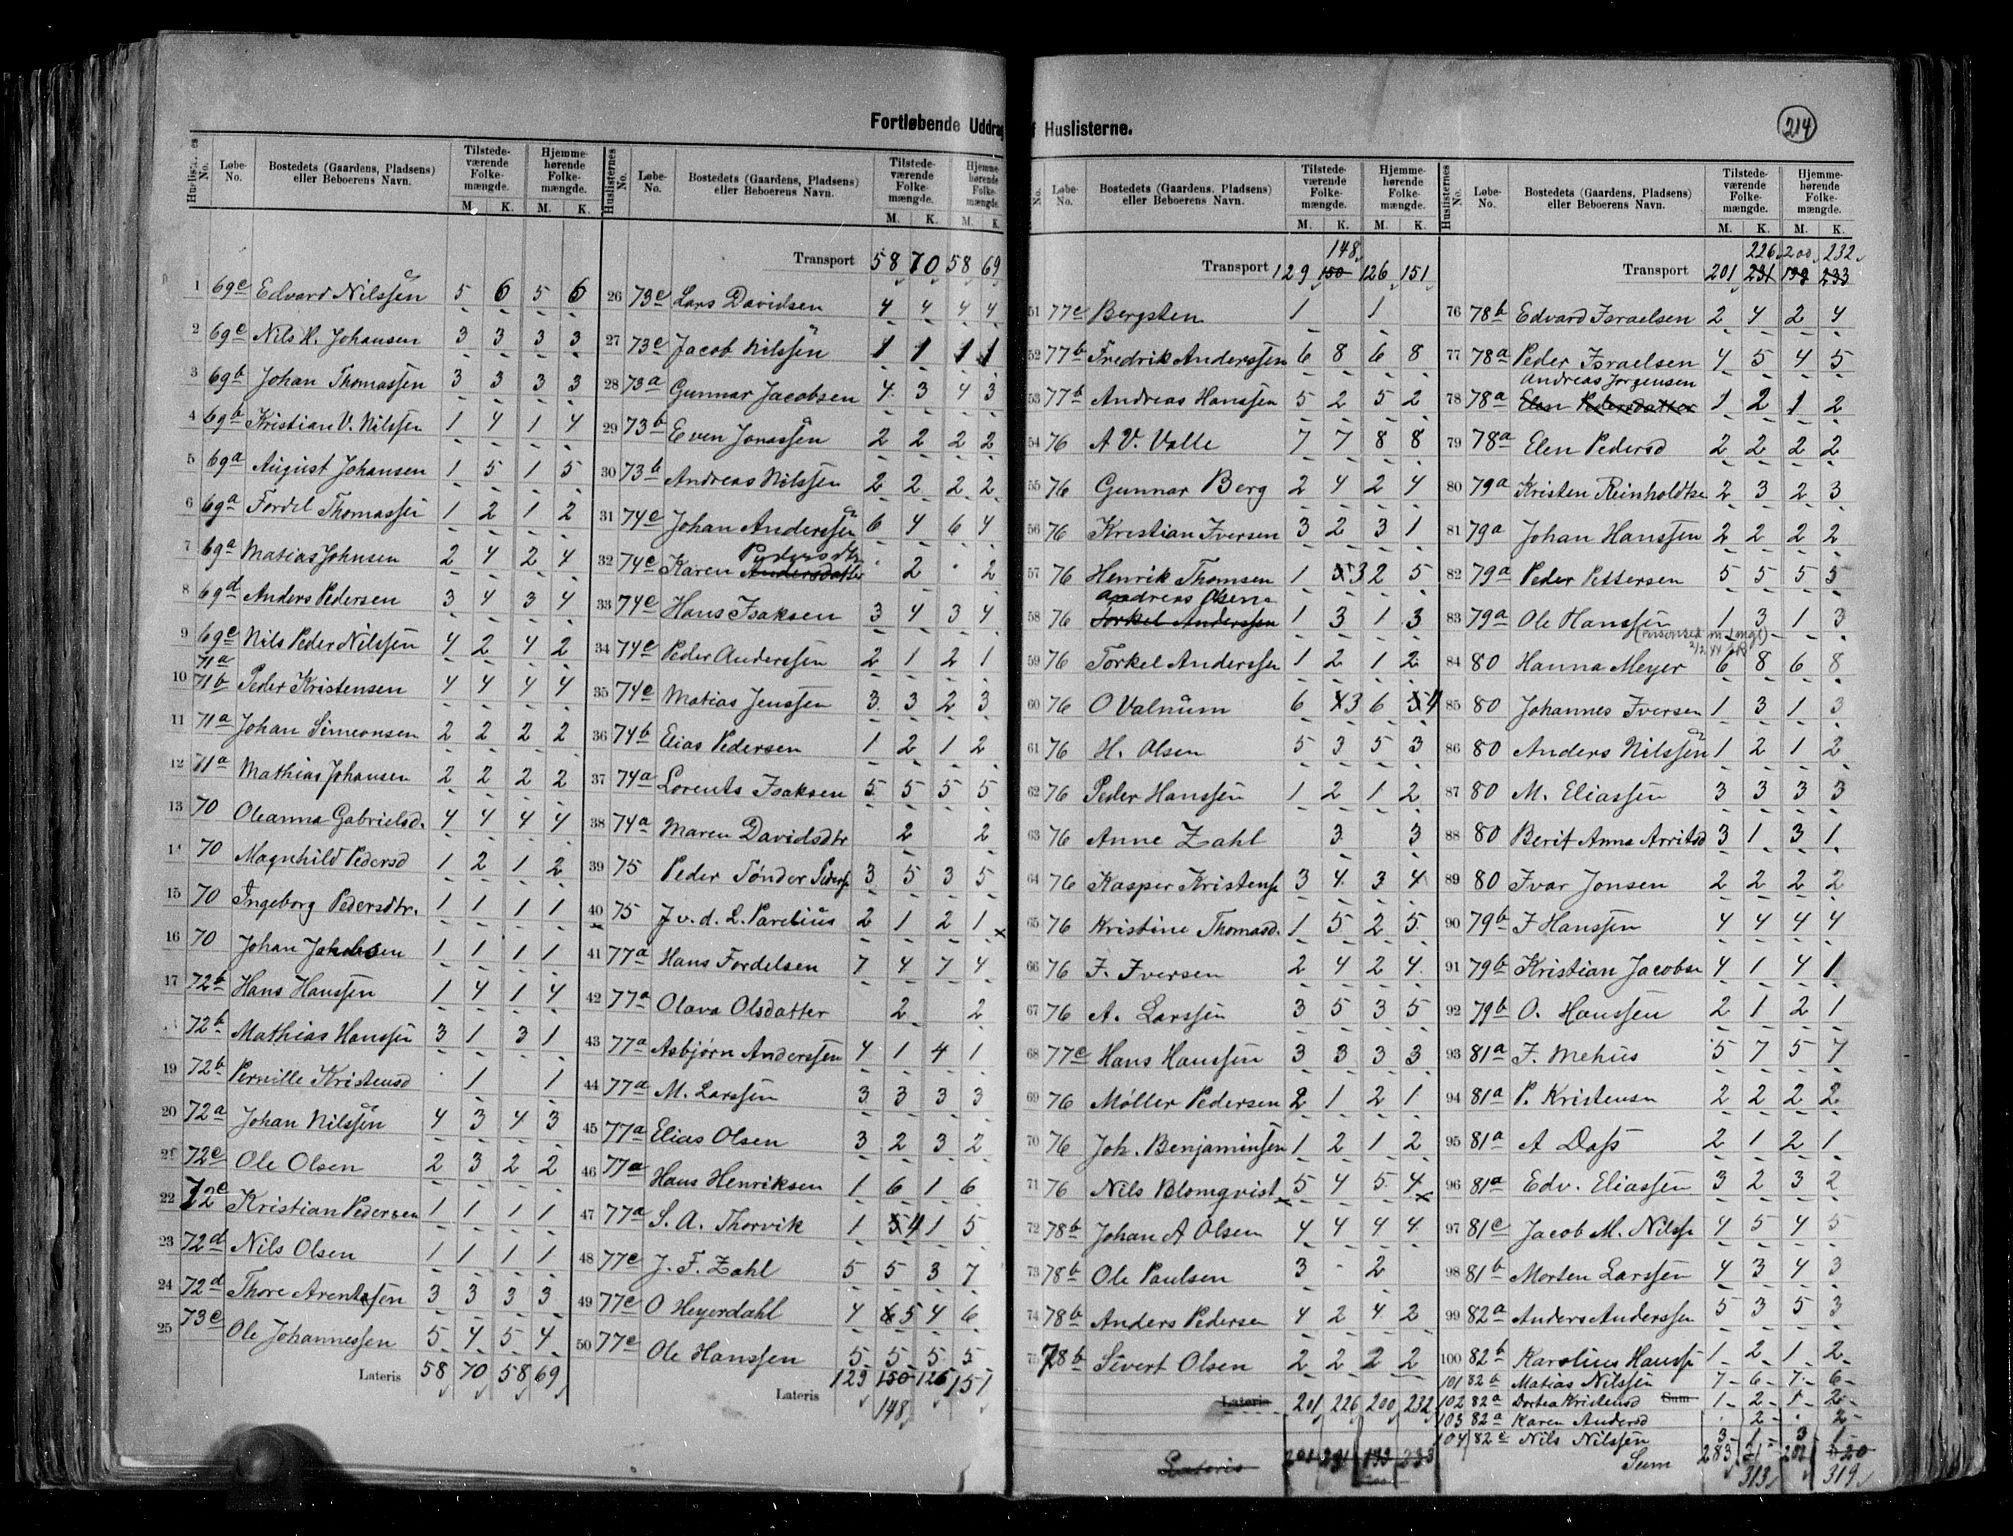 214
Fortløbende Uddrag af Huslisterne.
Huslisternes No. Løbe-No. Bostedets (Gaardens, Pladsens) eller Beboerens Navn. Tilstedeværende Folkemængde. M. K. Hjemmehørende Folkemængde. M. K.
1 69c Edvard Nilssen 5 6 5 6
2 69c Nils H. Johansen 3 3 3 3
3 69b Johan Thomassen 3 3 3 3
4 69b Kristian V. Nilssen 1 4 1 4
5 69a August Johansen 1 5 1 5
6 69a Fordel Thomassen 1 2 1 2
7 69a Matias Johnsen 2 4 2 4
8 69d Anders Pedersen 3 4 3 4
9 69c Nils Peder Nilssen 4 2 4 2
71a
10 71b Peder Kristensen 4 4 4 4
11 71a Johan Simeonsen 2 2 2 2
12 71a Mathias Johansen 2 2 2 2
13 70 Oleanna Gabrielsd. 4 4 4 4
14 70 Magnhild Pedersd 1 2 1 2
15 70 Ingeborg Pedersdtr. 1 1 1 1
16 70 Johan Jakobsen 1 1 1 1
17 72b Hans Hanssen 1 4 1 4
72b Mathias Hanssen 3 1 3 1
19 72b Pernille Kristensd 1 1
20 72a Johan Nilssen 4 3 4 3
21 72c Ole Olsen 2 3 2 2
22 72c Kristian Pedersen 1 1 1 1
23 72d Nils Olsen 1 1 1 1
24 72d Thore Arentssen 3 3 3 3
25 73c Ole Johannessen 5 4 5 4
Lateris 58 70 58 69
Huslisternes No. Løbe-No. Bostedets (Gaardens, Pladsens) eller Beboerens Navn. Tilstedeværende Folkemængde. M. K. Hjemmehørende Folkemængde. M. K.
Transport 58 70 58 69
26 73c Lars Davidsen 4 4 4 4
27 73c Jacob Nilssen 1 1 1 1
28 73a Gunnar Jacobsen 4 3 4 3
29 73b Even Jonassen 2 2 2 2
30 73b Andreas Nilssen 2 2 2 2
31 74c Johan Anderssen 6 4 6 4
Pedersdtr
32 74c Karen Andersdatter 2 2
33 74c Hans Isaksen 3 4 3 4
34 74c Peder Anderssen 2 1 2 1
35 74c Matias Jenssen 3 3 2 3
36 74b Elias Pedersen 1 2 1 2
37 74a Lorents Isaksen 5 5 5 5
38 74a Maren Davidsdtr 2 2
39 75 Peder Tønder Peders 3 5 3 5
40 75 J v. d. L. Parelius 2 1 2 1
41 77a Hans Fordelsen 7 4 7 4
42 77a Olava Olsdatter 2 2
43 77a Asbjørn Anderssen 4 1 4 1
44 77a M. Larssen 3 3 3 3
45 77a Elias Olsen 3 2 3 2
46 77a Hans Henriksen 1 6 1 6
47 77a S. A. Thorvik 1 5 4 1 5
48 77c J. F. Zahl 5 5 3 7
49 77c O Heyerdahl 4 6 5 4 6
50 77c Ole Hanssen 5 5 5 5
Lateris 129 150 126 151
148
No. Løbe-No. Bostedets (Gaardens, Pladsens) eller Beboerens Navn. Tilstedeværende Folkemængde. M. K. Hjemmehørende Folkemængde. M. K.
148
Transport 129 150 126 151
51 77c Bergsten 1 1
52 77b Fredrik Anderssen 6 8 6 8
53 77b Andreas Hanssen 5 2 5 2
54 76 A V. Valle 7 7 8 8
55 76 Gunnar Berg 2 4 2 4
56 76 Kristian Iversen 3 2 3 1
57 76 Henrik Thomsen 1 5 3 2 5
Andreas Olsen
58 76 Torkel Anderssen 1 3 1 3
59 76 Torkel Anderssen 1 2 1 2
60 76 O Valnum 6 4 3 6 3 4
61 76 H. Olsen 5 3 5 3
62 76 Peder Hanssen 1 2 1 2
63 76 Anne Zahl 3 3
64 76 Kasper Kristens 3 4 3 4
65 76 Kristine Thomasd. 1 5 2 5
66 76 F. Iversen 2 4 2 4
67 76 A. Larssen 3 5 3 5
68 77c Hans Hanssen 3 3 3 3
69 76 Møller Pedersen 2 1 2 1
70 76 Joh. Benjaminsen 1 2 1 2
71 76 Nils Blomqvist 5 4 5 4
72 78b Johan A Olsen 4 4 4 4
73 78b Ole Paulsen 3 - 2
74 78b Anders Pedersen 4 2 4 2
75 78b Sivert Olsen 2 2 2 2
Lateris 201 226 200 232
Lateris 201 231 199 233
Huslisternes No. Løbe-No. Bostedets (Gaardens, Pladsens) eller Beboerens Navn. Tilstedeværende Folkemængde. M. K. Hjemmehørende Folkemængde. M. K.
226 200 232
Transport 201 231 199 233
76 78b Edvard Israelsen 2 4 2 4
77 78a Peder Israelsen 4 5 4 5
Andreas Jørgensen
78 78a Elen Pedersdatter 1 2 1 2
79 78a Elen Pedersd 2 2 2 2
80 79a Kristen Reinholdtse 2 3 2 3
81 79a Johan Hanssen 2 2 2 2
82 79a Peder Pettersen 5 5 5 5
83 79a Ole Hanssen 1 3 1 3
84 80 Hanna Meyer 6 8 6 8
85 80 Johannes Iversen 1 3 1 3
86 80 Anders Nilssen 1 2 1 2
87 80 M. Eliassen 3 3 3 3
88 80 Berit Anna Arritsd 3 1 3 1
89 80 Ivar Jonsen 2 2 2 2
90 79b F Hanssen 4 4 4 4
91 79b Kristian Jacobse 4 1 4 1
92 79b O. Hanssen 2 1 2 1
93 81a F. Mehus 5 7 5 7
94 81a P. Kristensn 2 2 2 2
95 81a A Dass 2 1 2 1
96 81a Edv. Eliassen 3 2 3 2
97 81c Jacob M. Nilss 4 5 4 5
98 81b Morten Larssen 4 3 4 3
99 82a Anders Anderssen 5 3 5 3
100 82b Karolius Hanss 1 2 1 2
101 82b Matias Nilssen 7 6 7 6
102 82a Dortea Kristensd Sum 1 2 1 2
103 82a Karen Andersd 2 2
104 82c Nils Nilssen 3 1 3 1
Sum 283
313 319